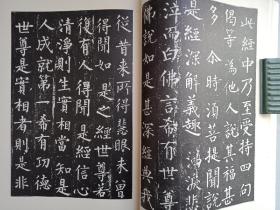 此經中乃至受持四句
偈等為他人說其福甚
多尒時須菩提聞說
是經深解義趣涕淚悲
泣而白佛言希有世尊
佛說如是甚深經典我
從昔來所得慧眼未曾
得聞如是之經世尊若
復有人得聞是經信心
清淨則生實相當知是
人成就第一希有功德
世尊是實相者則是非